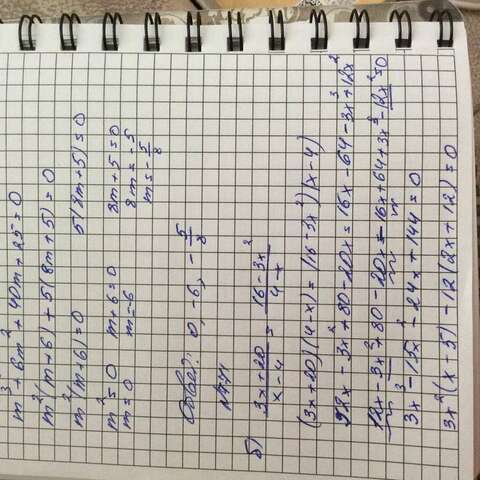 m³ + 6m² + 40m + 25 = 0
m²(m+6) + 5(8m+5) = 0
m²(m+6) = 0 5(8m+5) = 0
m² = 0 m+6=0 8m+5=0
m=0 m=-6 8m=-5
m=-5/8
Ответ: 0, -6, -5/8
б) (3x+20)/(x-4) = (16-3x²)/(4-x)
(3x+20)(4-x) = (16-3x²)(x-4)
12x - 3x² + 80 - 20x = 16x - 64 - 3x³ + 12x²
12x - 3x² + 80 - 20x - 16x + 64 + 3x³ - 12x² = 0
3x³ - 15x² - 24x + 144 = 0
3x²(x-5) - 12(2x+12) = 0